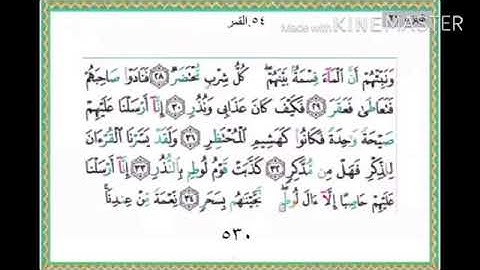 ٥٤.القمر
Made with KINEMASTER
وَنَبِّئْهُمْ أَنَّ الْمَآءَ قِسْمَةٌۢ بَيْنَهُمْ ۖ كُلُّ شِرْبٍ مُّحْتَضَرٌ ﴿٢٨﴾ فَنَادَوْا صَاحِبَهُمْ
فَتَعَاطَىٰ فَعَقَرَ ﴿٢٩﴾ فَكَيْفَ كَانَ عَذَابِى وَنُذُرِ ﴿٣٠﴾ إِنَّآ أَرْسَلْنَا عَلَيْهِمْ
صَيْحَةً وَٰحِدَةً فَكَانُوا۟ كَهَشِيمِ الْمُحْتَظِرِ ﴿٣١﴾ وَلَقَدْ يَسَّرْنَا الْقُرْءَانَ
لِلذِّكْرِ فَهَلْ مِن مُّدَّكِرٍ ﴿٣٢﴾ كَذَّبَتْ قَوْمُ لُوطٍۭ بِالنُّذُرِ ﴿٣٣﴾ إِنَّآ أَرْسَلْنَا
عَلَيْهِمْ حَاصِبًا إِلَّآ ءَالَ لُوطٍ ۖ نَّجَّيْنَٰهُم بِسَحَرٍ ﴿٣٤﴾ نِّعْمَةً مِّنْ عِندِنَا ۚ
٥٣٠